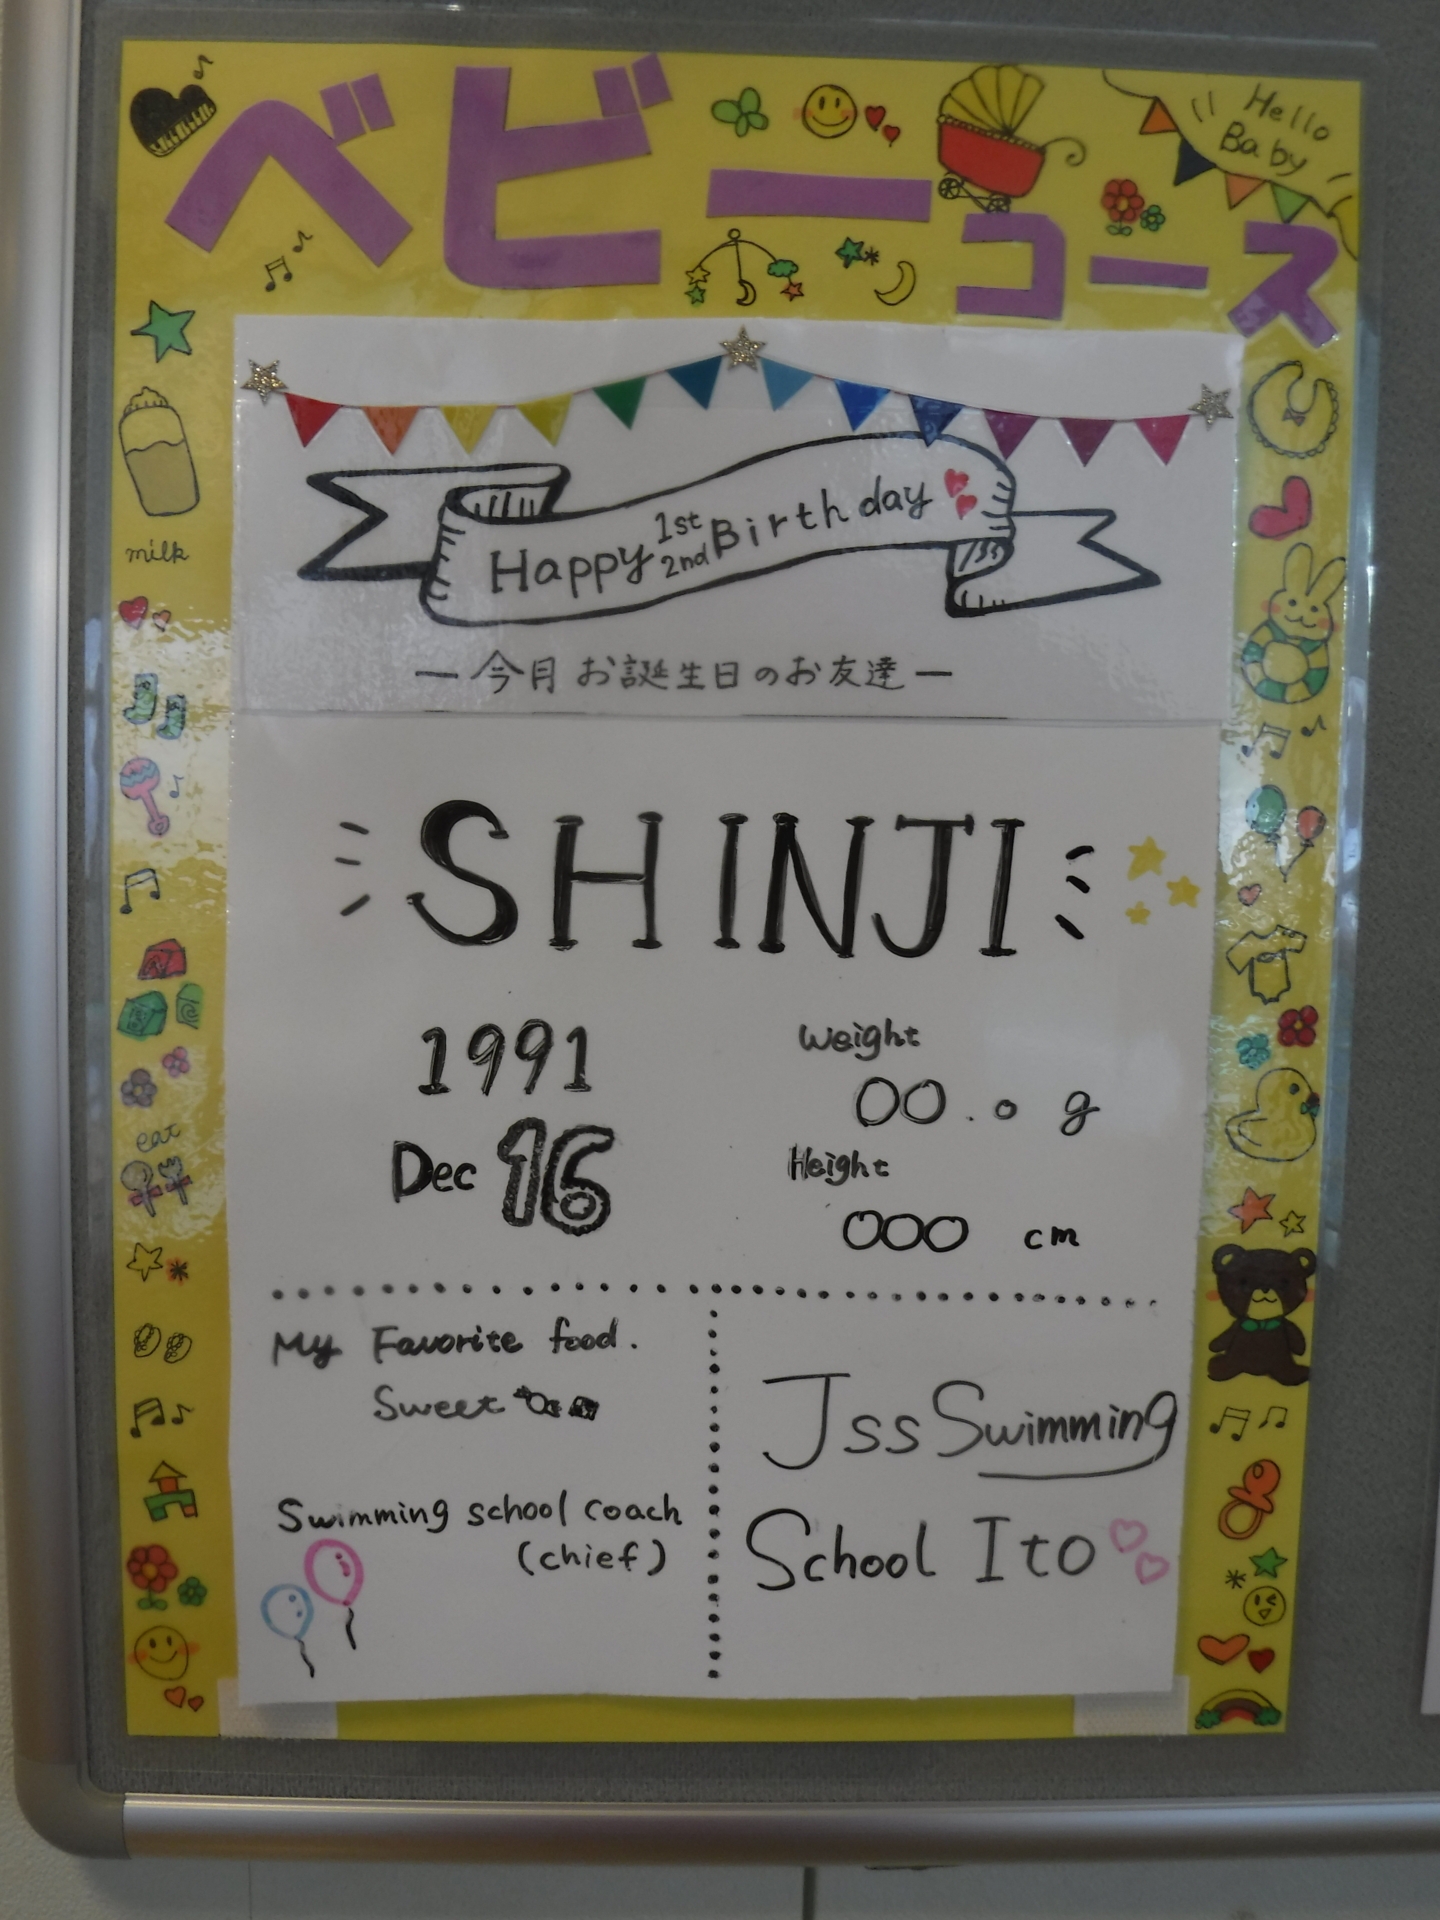 ベビーコース
Hello
Baby
Happy 1st 2nd Birthday
ー今月お誕生日のお友達ー
milk
SHINJI
1991
Dec 16
Weight
00.0 g
Height
000 cm
eat
My Favorite food.
Sweet
Swimming school coach
(chief)
Jss Swimming
School Ito